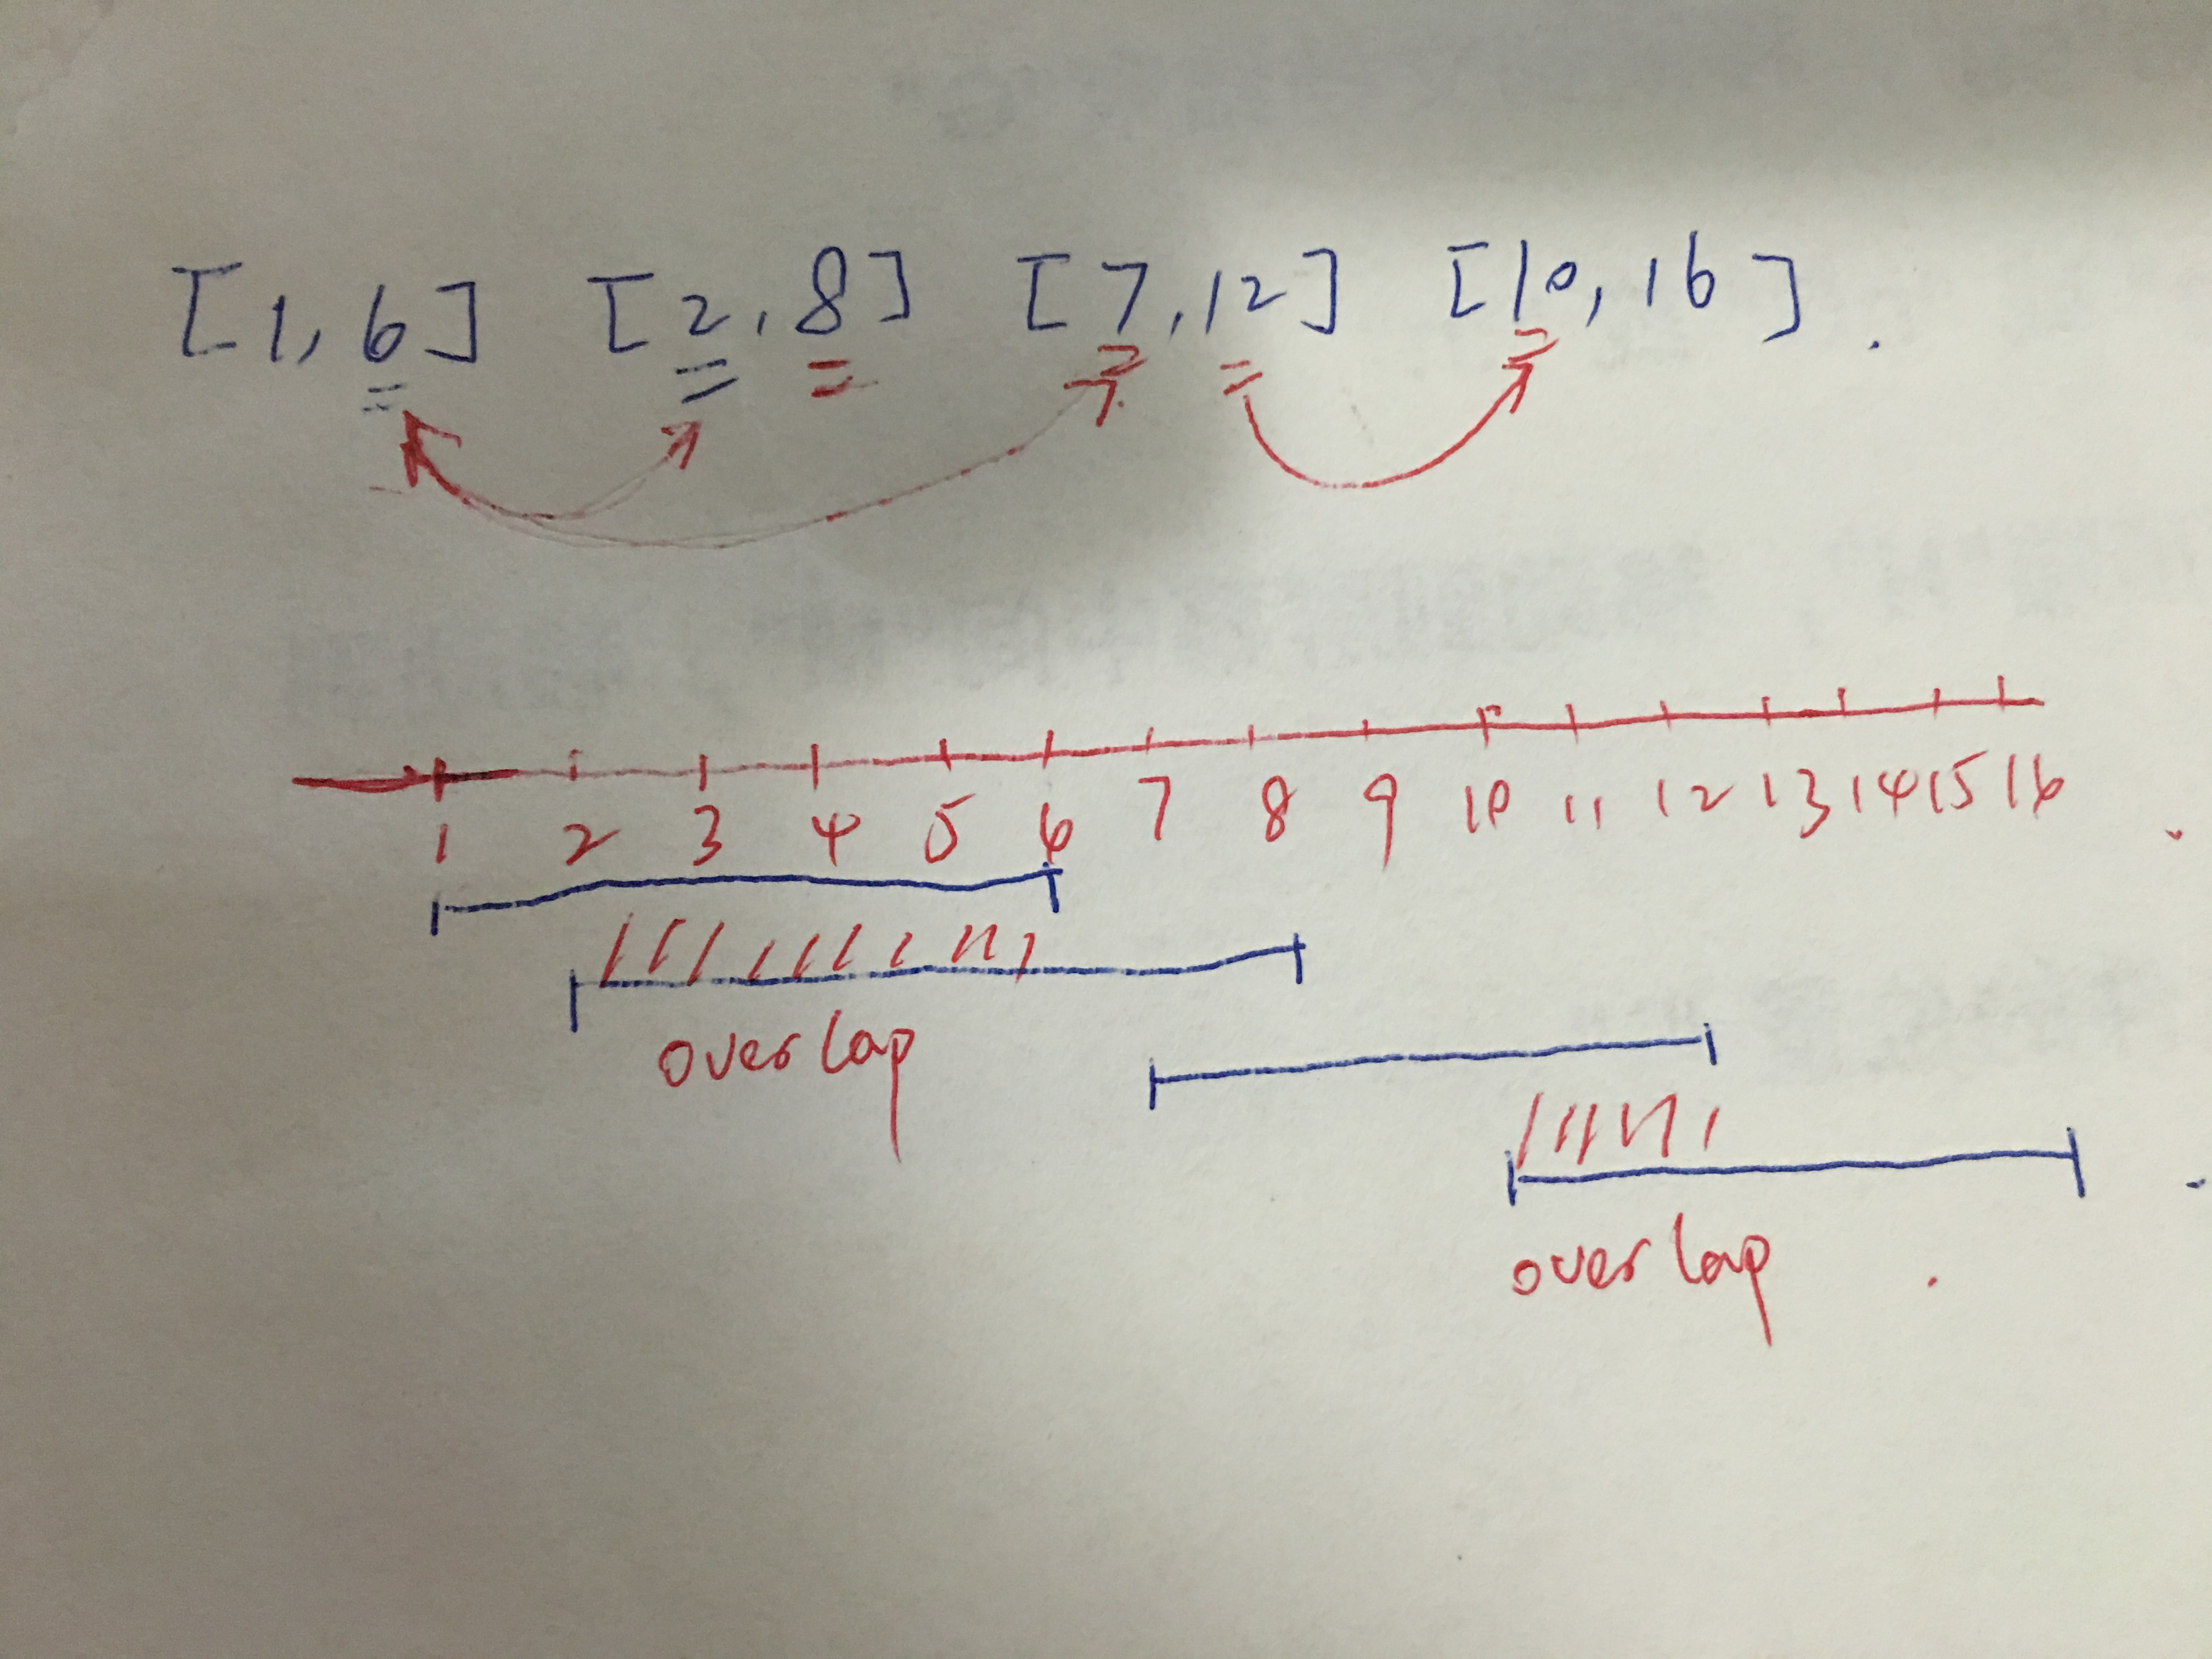 [1,6] [2,8] [7,12] [10,16]
1 2 3 4 5 6 7 8 9 10 11 12 13 14 15 16
overlap
overlap